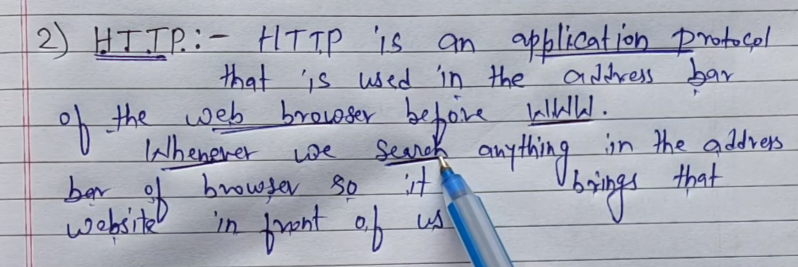 2) HTTP:- HTTP is an application Protocol
that is used in the address bar
of the web browser before WWW.
Whenever we search anything in the address
bar of browser so it brings that
website in front of us